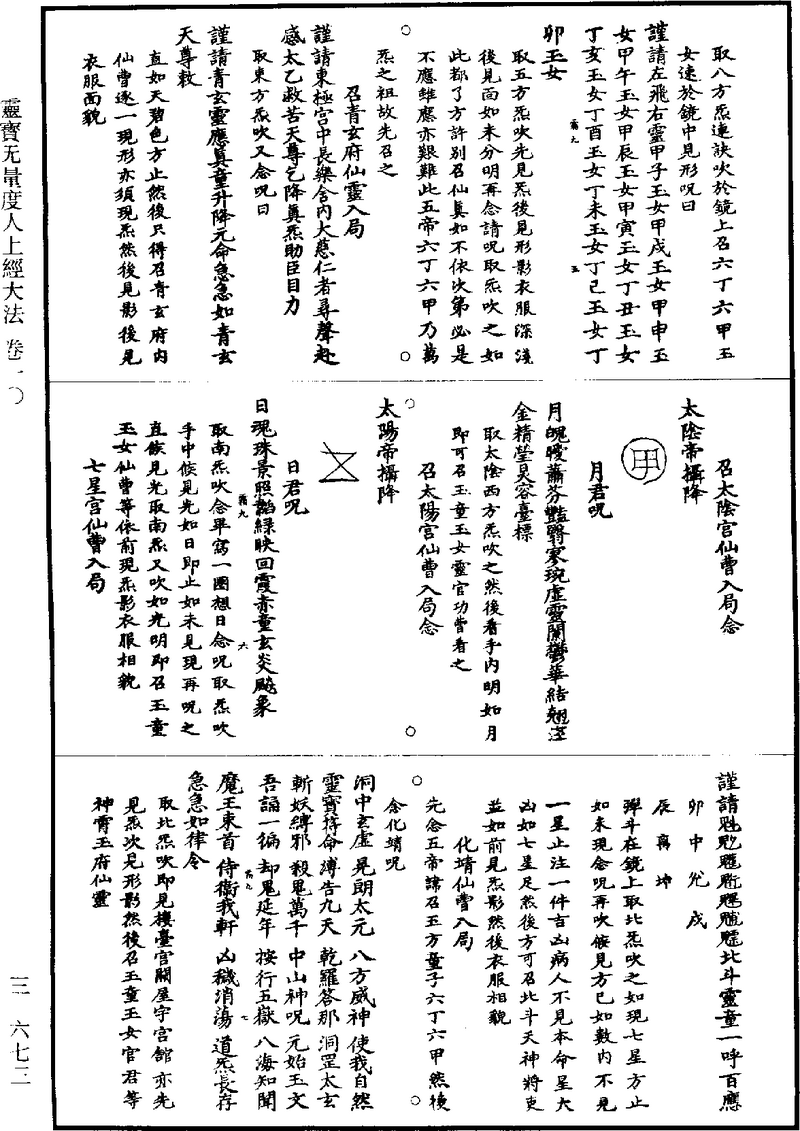 取八方炁連訣吹於鏡上召六丁六甲玉
女速於鏡中見形呪曰
謹請左飛右靈甲子玉女甲戌玉女甲申玉
女甲午玉女甲辰玉女甲寅玉女丁丑玉女
丁亥玉女丁酉玉女丁未玉女丁巳玉女丁
卯玉女
取五方炁吹先見炁後見形影衣服深淺
後見面如未分明再念請呪取炁吹之如
此都了方許別召仙真如不依次第必是
不應雖應亦艱難此五帝六丁六甲乃萬
炁之祖故先召之
召青玄府仙靈入局
謹請東極宮中長樂舍內大慈仁者尋聲赴
感太乙救苦天尊乞降真炁助臣目力
取東方炁吹又念呪曰
謹請青玄靈應真童升降元命急急如青玄
天尊敕
直如天碧色方止然後只得召青玄府內
仙曹逐一現形亦須現炁然後見影後見
衣服面貌
召太陰宮仙曹入局念
太陰帝攝降
月君呪
月魄曖蕭芬豔翳寥琬虛靈蘭鬱華結翹淳
金精瑩炅容臺標
取太陰西方炁吹之然後看手內明如月
即可召玉童玉女靈官功曹看之
召太陽宮仙曹入局念
太陽帝攝降
日君呪
日魂珠景照韜綠映回霞赤童玄炎飈象
取南炁吹念畢寫一圈想日念呪取炁吹
手中候見光如日即止如未見現再呪之
直候見光取南炁又吹如光明即召玉童
玉女仙曹等依前現炁影衣服相貌
七星宮仙曹入局
謹請魁𩲃䰢魓䰡䰣魒北斗靈童一呼百應
卯中兊戌
辰巽坤
彈斗在鏡上取北炁吹之如現七星方止
如未現念呪再吹候見方已如數內不見
一星止注一件吉凶病人不見本命星大
凶如七星足然後方可召北斗天神將吏
並如前見炁影然後衣服相貌
化靖仙曹入局
先念五帝諱召五方童子六丁六甲然後
念化靖呪
洞中玄虛 晃朗太元 八方威神 使我自然
靈寶符命 溥告九天 乾羅答那 洞罡太玄
斬妖縛邪 殺鬼萬千 中山神呪 元始玉文
吾誦一徧 却鬼延年 按行五嶽 八海知聞
魔王束首 侍衛我軒 凶穢消蕩 道炁長存
急急如律令
取北炁吹即見樓臺宮闕屋宇宮館亦先
見炁次見形影然後召玉童玉女官君等
神霄玉府仙靈
靈寶无量度人上經大法 卷二〇
三 六七三